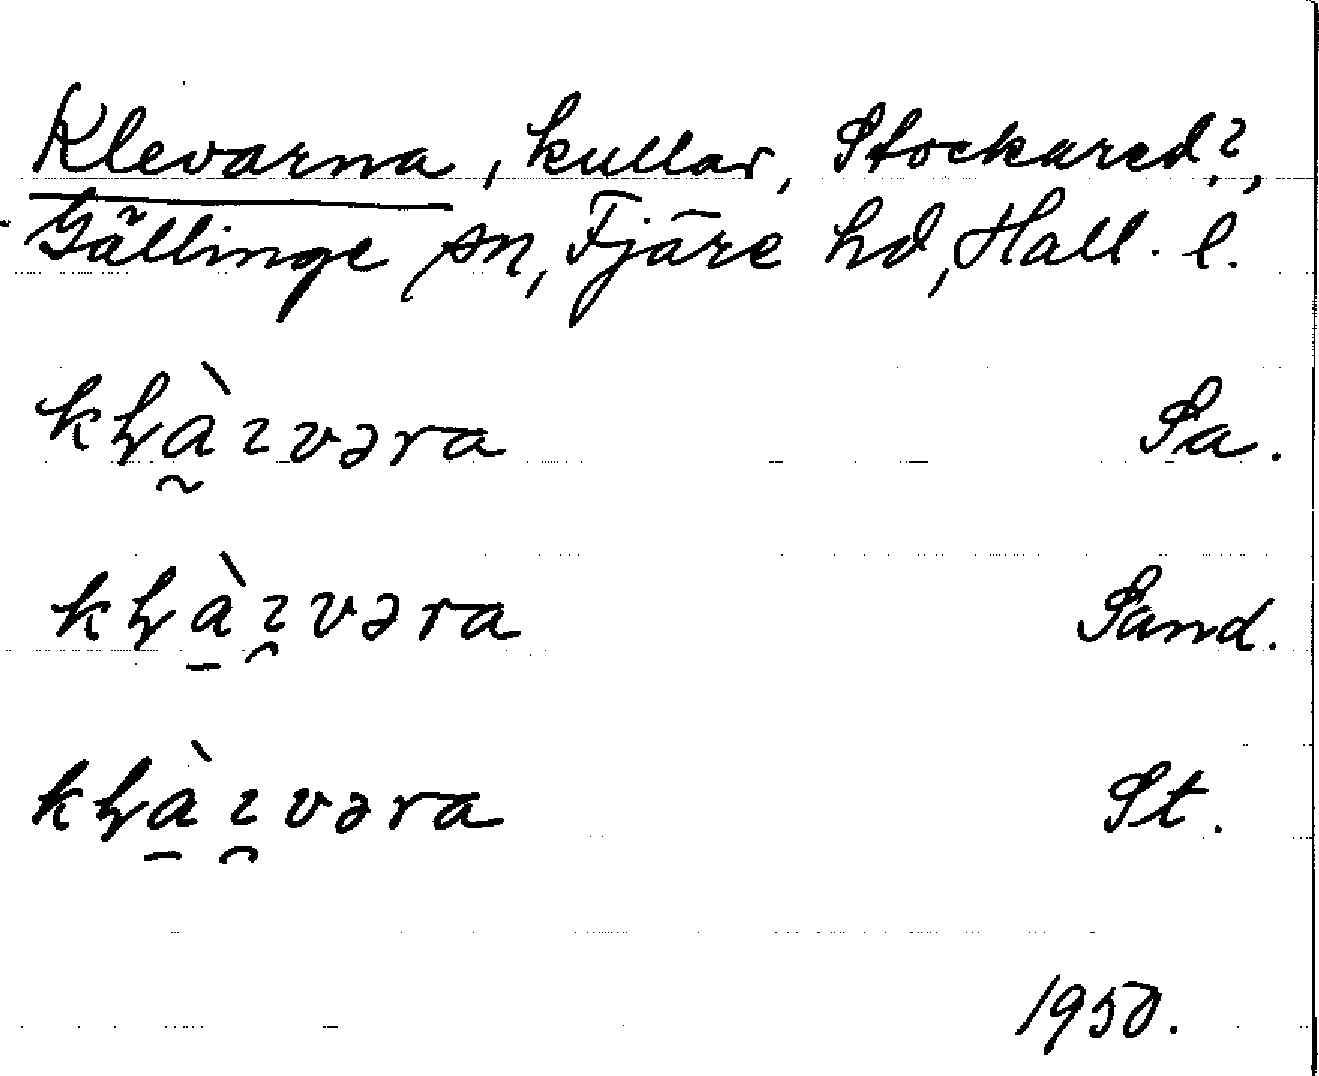 Klevarna, kullar, Stockared?,
Gällinge sn, Fjäre hd, Hall. l.
Sa.
Sand.
St.
1950.